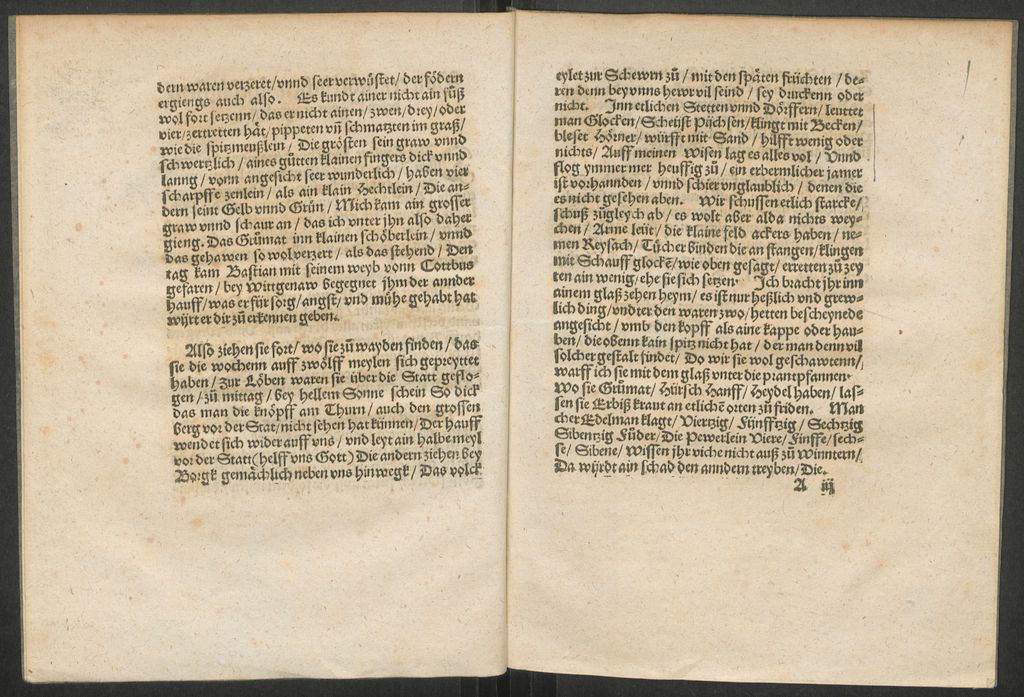 dern waren verzeret/vnnd seer verwüstet/der födern
ergiengs auch also. Es kundt ainer nicht ain füß
wol fort setzenn/das er nicht ainen/zwen/drey/oder
vier/zertretten hät/pippeten vñ schmatzten im graß/
wie die spitzmeußlein/Die grösten sein graw vnnd
schwertzlich/aines gůtten klainen fingers dick vnnd
lanng/vorn angesicht seer wunderlich/haben vier
scharpffe zenlein/als ain klain Hechtlein/Die an-
dern seint Gelb vnnd Grün/Mich kam ain grosser
graw vnnd schaur an/das ich vnter jhn also daher
gieng. Das Grůmat inn klainen schöberlein/vnnd
das gehawen so wol verzert/als das stehend/Den
tag kam Bastian mit seinem weyb vonn Cottbus
gefaren/bey Wittgenaw begegnet jhm der annder
hauff/was er für sorg/angst/vnd mühe gehabt hat
wyrt er dir zů erkennen geben.
Also ziehen sie fort/wo sie zů wayden finden/das
sie die wochenn auff zwölff meylen sich gepreyttet
haben/Zur Löben waren sie über die Statt geflo-
gen/zů mittag/bey hellem Sonne schein So dick
das man die knöpff am Thurn/auch den grossen
berg vor der Stat/nicht sehen hat künnen/Der hauff
wendet sich wider auff vns/vnd leyt ain halbe meyl
vor der Statt(helff vns Gott) Die andern ziehen bey
Borgk gemächlich neben vns hinwegk/Das volck
eylet zur Schewrn zů/mit den späten früchten/de-
ren denn bey vnns hewr vil seind/sey druckenn oder
nicht. Jnn etlichen Stetten vnnd Dörffern/leuttet
man Glocken/Scheüst Püchsen/klingt mit Becken/
bleset Hörner/würfft mit Sand/hilfft wenig oder
nichts/Auff meinen Wisen lag es alles vol/Vnnd
flog ymmer mer heuffig zů/ein erbermlicher jamer
ist vorhannden/vnnd schier vnglaublich/denen die
es nicht gesehen aben. Wir schussen etlich starcke/
schuß zůgleych ab/es wolt aber alda nichts wey-
chen/Arme leüt/die klaine feld ackers haben/ne-
men Reysach/Tücher binden die an stangen/klingen
mit Schauff glockē/wie oben gesagt/erretten zů zey
ten ain wenig/ehe sie sich setzen. Jch bracht jhr inn
ainem glaß zehen heym/es ist nur heßlich vnd grew-
lich ding/vnd ter den waren zwo/hetten bescheynede
angesicht/vmb den kopff als aine kappe oder hau-
ben/die obenn kain spitz nicht hat/der man denn vil
solcher gestalt findet/Do wir sie wol geschawtenn/
warff ich sie mit dem glaß vnter die prantpfannen.
Wo sie Grůmat/Hürsch Hanff/Heydel haben/las-
sen sie Erbiß kraut an etlichē orten zů friden. Man
cher Edelman klagt/Viertzig/Fünfftzig/Sechtzig
Sibentzig Füder/Die Pewerlein Viere/Finffe/sech-
se/Sibene/Wissen jhr viche nicht auß zů wünntern/
Da wyrdt ain schad den anndern treyben/Die.
A iij